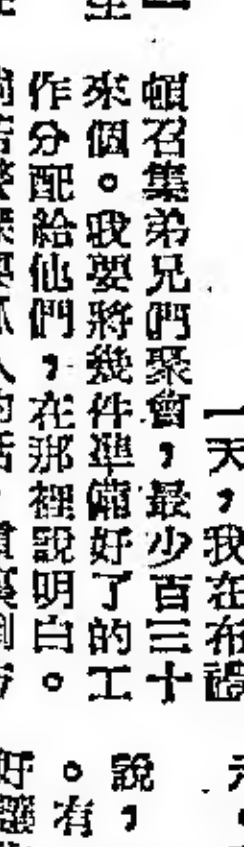 一天，我在布禮
頓召集弟兄們聚會，最少百三十
來個。我要將幾件準備好了的工
作分配給他們，在那裡說明白。
說，
。有